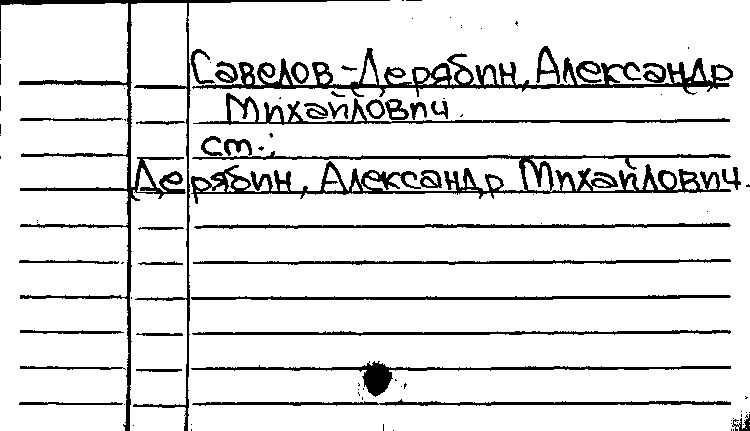 Савелов-Дерябин, Александр
Михайлович
ст.:
Дерябин, Александр Михайлович.